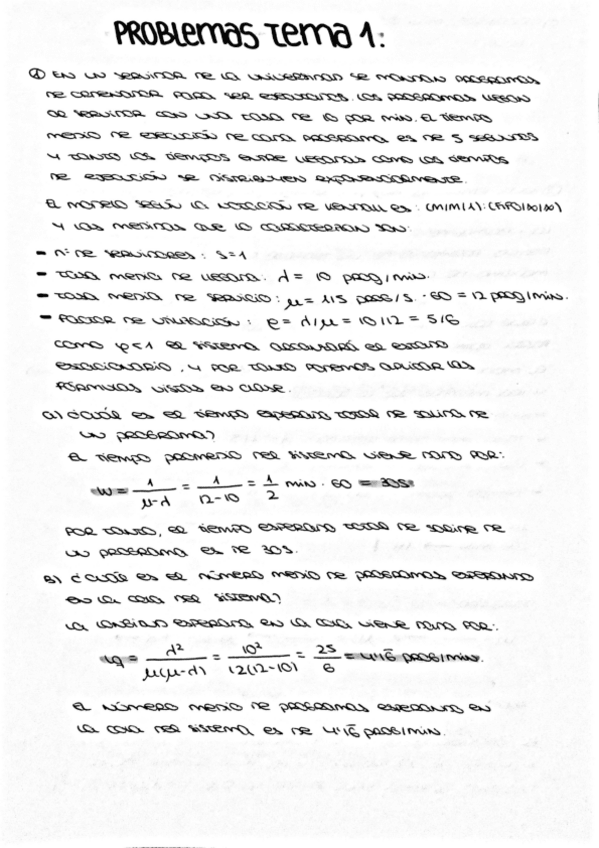 PROBLEMAS TEMA 1:
① EN UN SERVIDOR DE LA UNIVERSIDAD SE MANDAN PROGRAMAS
DE ORDENADOR PARA SER EJECUTADOS. LOS PROGRAMAS LLEGAN
AL SERVIDOR CON UNA TASA DE 10 POR MIN. EL TIEMPO
MEDIO DE EJECUCIÓN DE CADA PROGRAMA ES DE 5 SEGUNDOS
Y TANTO LOS TIEMPOS ENTRE LLEGADAS COMO LOS TIEMPOS
DE EJECUCIÓN SE DISTRIBUYEN EXPONENCIALMENTE.
EL MODELO SEGÚN LA NOTACIÓN DE KENDALL ES: (M/M/1):(FIFO/∞/∞)
Y LAS MEDIDAS QUE LO CARACTERIZAN SON:
- Nº DE SERVIDORES: S=1
- TASA MEDIA DE LLEGADA: λ = 10 PROG/MIN.
- TASA MEDIA DE SERVICIO: μ = 1/5 PROG/S. · 60 = 12 PROG/MIN.
- FACTOR DE UTILIZACIÓN: ρ = λ/μ = 10/12 = 5/6
COMO ρ<1 EL SISTEMA ALCANZARÁ EL ESTADO
ESTACIONARIO, Y POR TANTO PODEMOS APLICAR LAS
FÓRMULAS VISTAS EN CLASE.
A) ¿CUÁL ES EL TIEMPO ESPERADO TOTAL DE SALIDA DE
UN PROGRAMA?
EL TIEMPO PROMEDIO DEL SISTEMA VIENE DADO POR:
W = 1/(μ-λ) = 1/(12-10) = 1/2 MIN · 60 = 30S
POR TANTO, EL TIEMPO ESPERADO TOTAL DE SALIDA DE
UN PROGRAMA ES DE 30S.
B) ¿CUÁL ES EL NÚMERO MEDIO DE PROGRAMAS ESPERANDO
EN LA COLA DEL SISTEMA?
LA LONGITUD ESPERADA EN LA COLA VIENE DADA POR:
Lq = λ²/(μ(μ-λ)) = 10²/(12(12-10)) = 25/6 = 4'16 PROG/MIN.
EL NÚMERO MEDIO DE PROGRAMAS ESPERANDO EN
LA COLA DEL SISTEMA, ES DE 4'16 PROG/MIN.